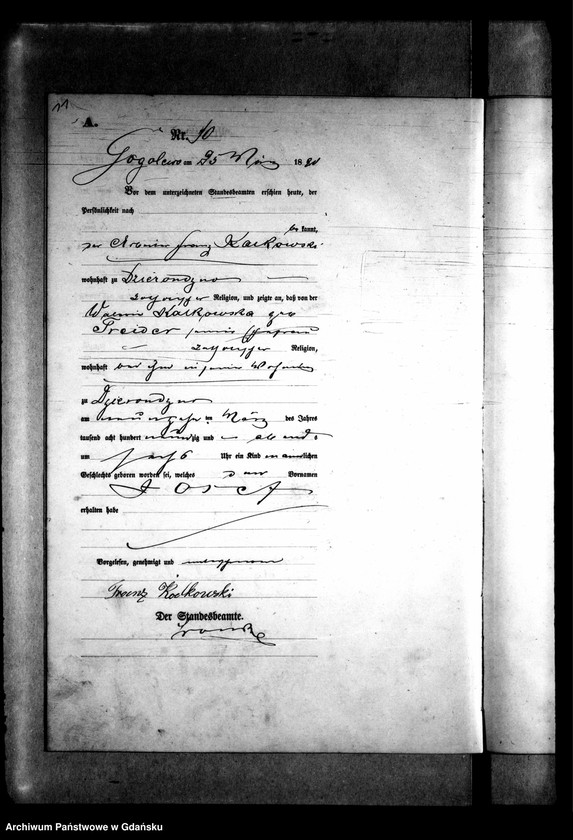 11
A.
Nr. 10
Gogolewo am 25 März 1890
Vor dem unterzeichneten Standesbeamten erschien heute, der
Persönlichkeit nach
be kannt,
der Franz Kalkowski
wohnhaft zu Dzierondzno
katholischer Religion, und zeigte an, daß von der
Kalkowska geb
Preider seiner Ehefrau
katholischer Religion,
wohnhaft bei ihm in seiner Wohnung
zu Dzierondzno
am neunzehnten März des Jahres
tausend acht hundert neunzig und abends
um sechs Uhr ein Kind männlichen
Geschlechts geboren worden sei, welches den Vornamen
Josef
erhalten habe
Vorgelesen, genehmigt und unterschrieben
Franz Kalkowski
Der Standesbeamte.
Archiwum Państwowe w Gdańsku